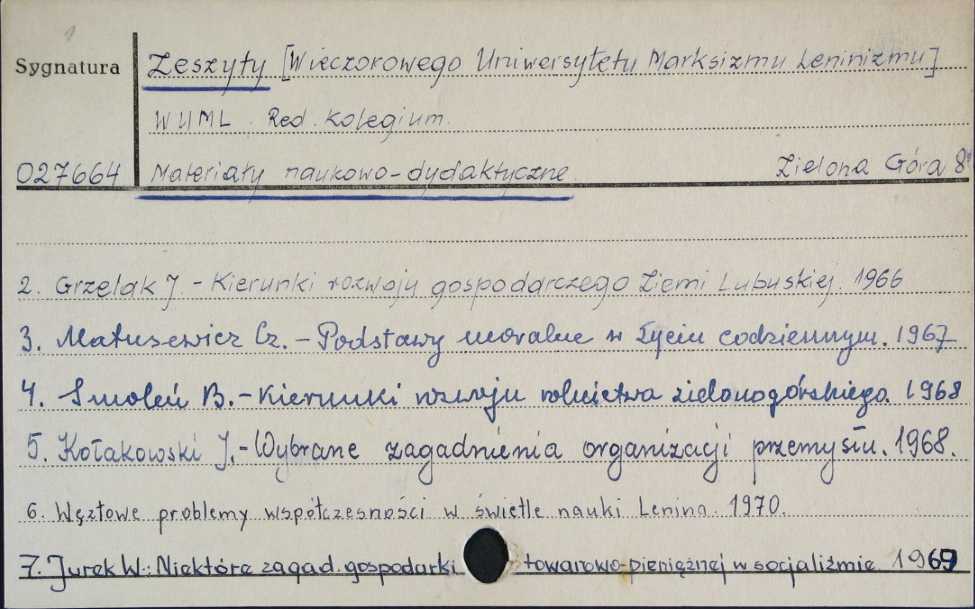 1
Sygnatura Zeszyty [Wieczorowego Uniwersytetu Marksizmu Leninizmu]
WUML. Red. Kolegium.
027664 Materiały naukowo-dydaktyczne. Zielona Góra 8°
2. Grzelak J. - Kierunki rozwoju gospodarczego Ziemi Lubuskiej. 1966
3. Matusewicz Cz. - Podstawy moralne w życiu codziennym. 1967
4. Smoleń B. - Kierunki rozwoju rolnictwa zielonogórskiego. 1968
5. Kołakowski J. - Wybrane zagadnienia organizacji przemysłu. 1968.
6. Węzłowe problemy współczesności w świetle nauki Lenina. 1970.
7. Jurek W.: Niektóre zagad. gospodarki towarowo-pieniężnej w socjaliźmie 1969